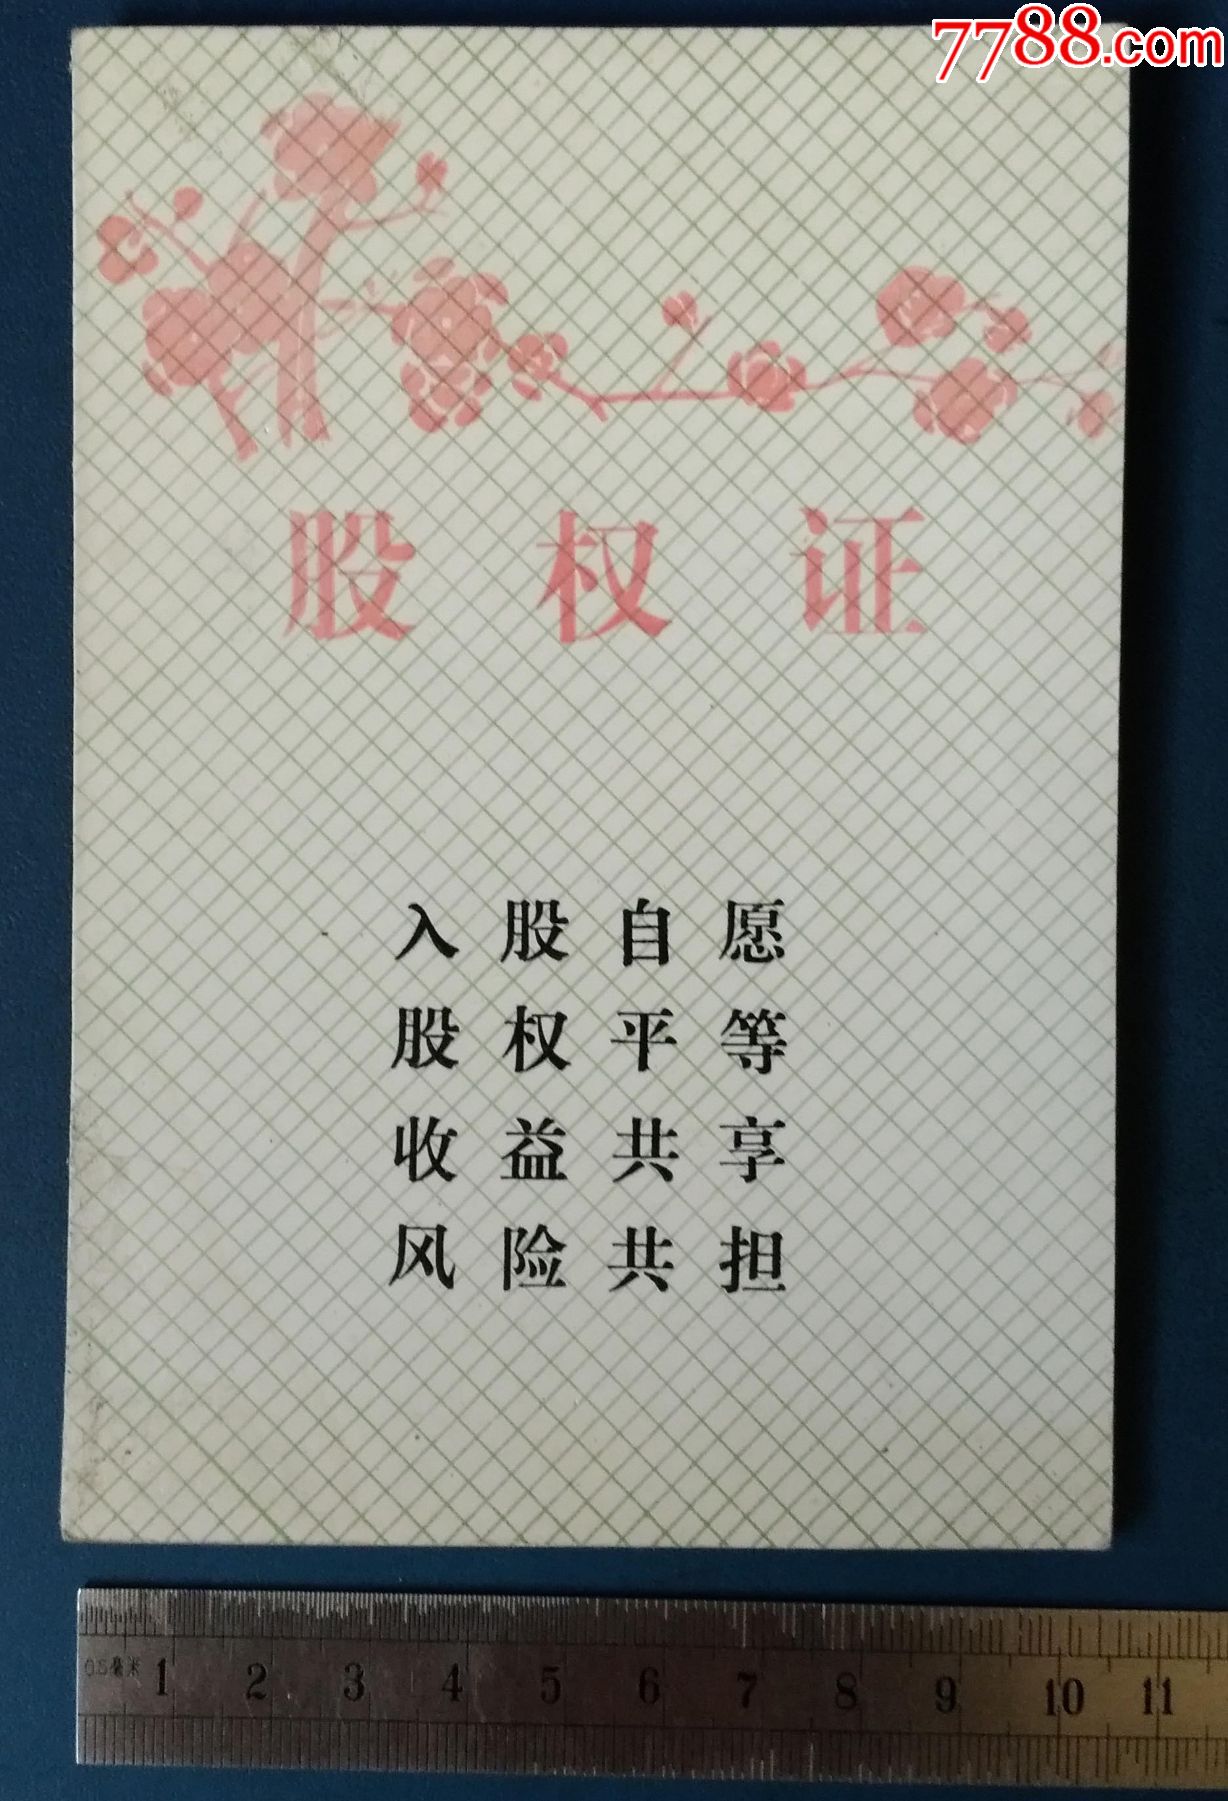 7788.com
股权证
入股自愿
股权平等
收益共享
风险共担
0.5毫米 1 2 3 4 5 6 7 8 9 10 11